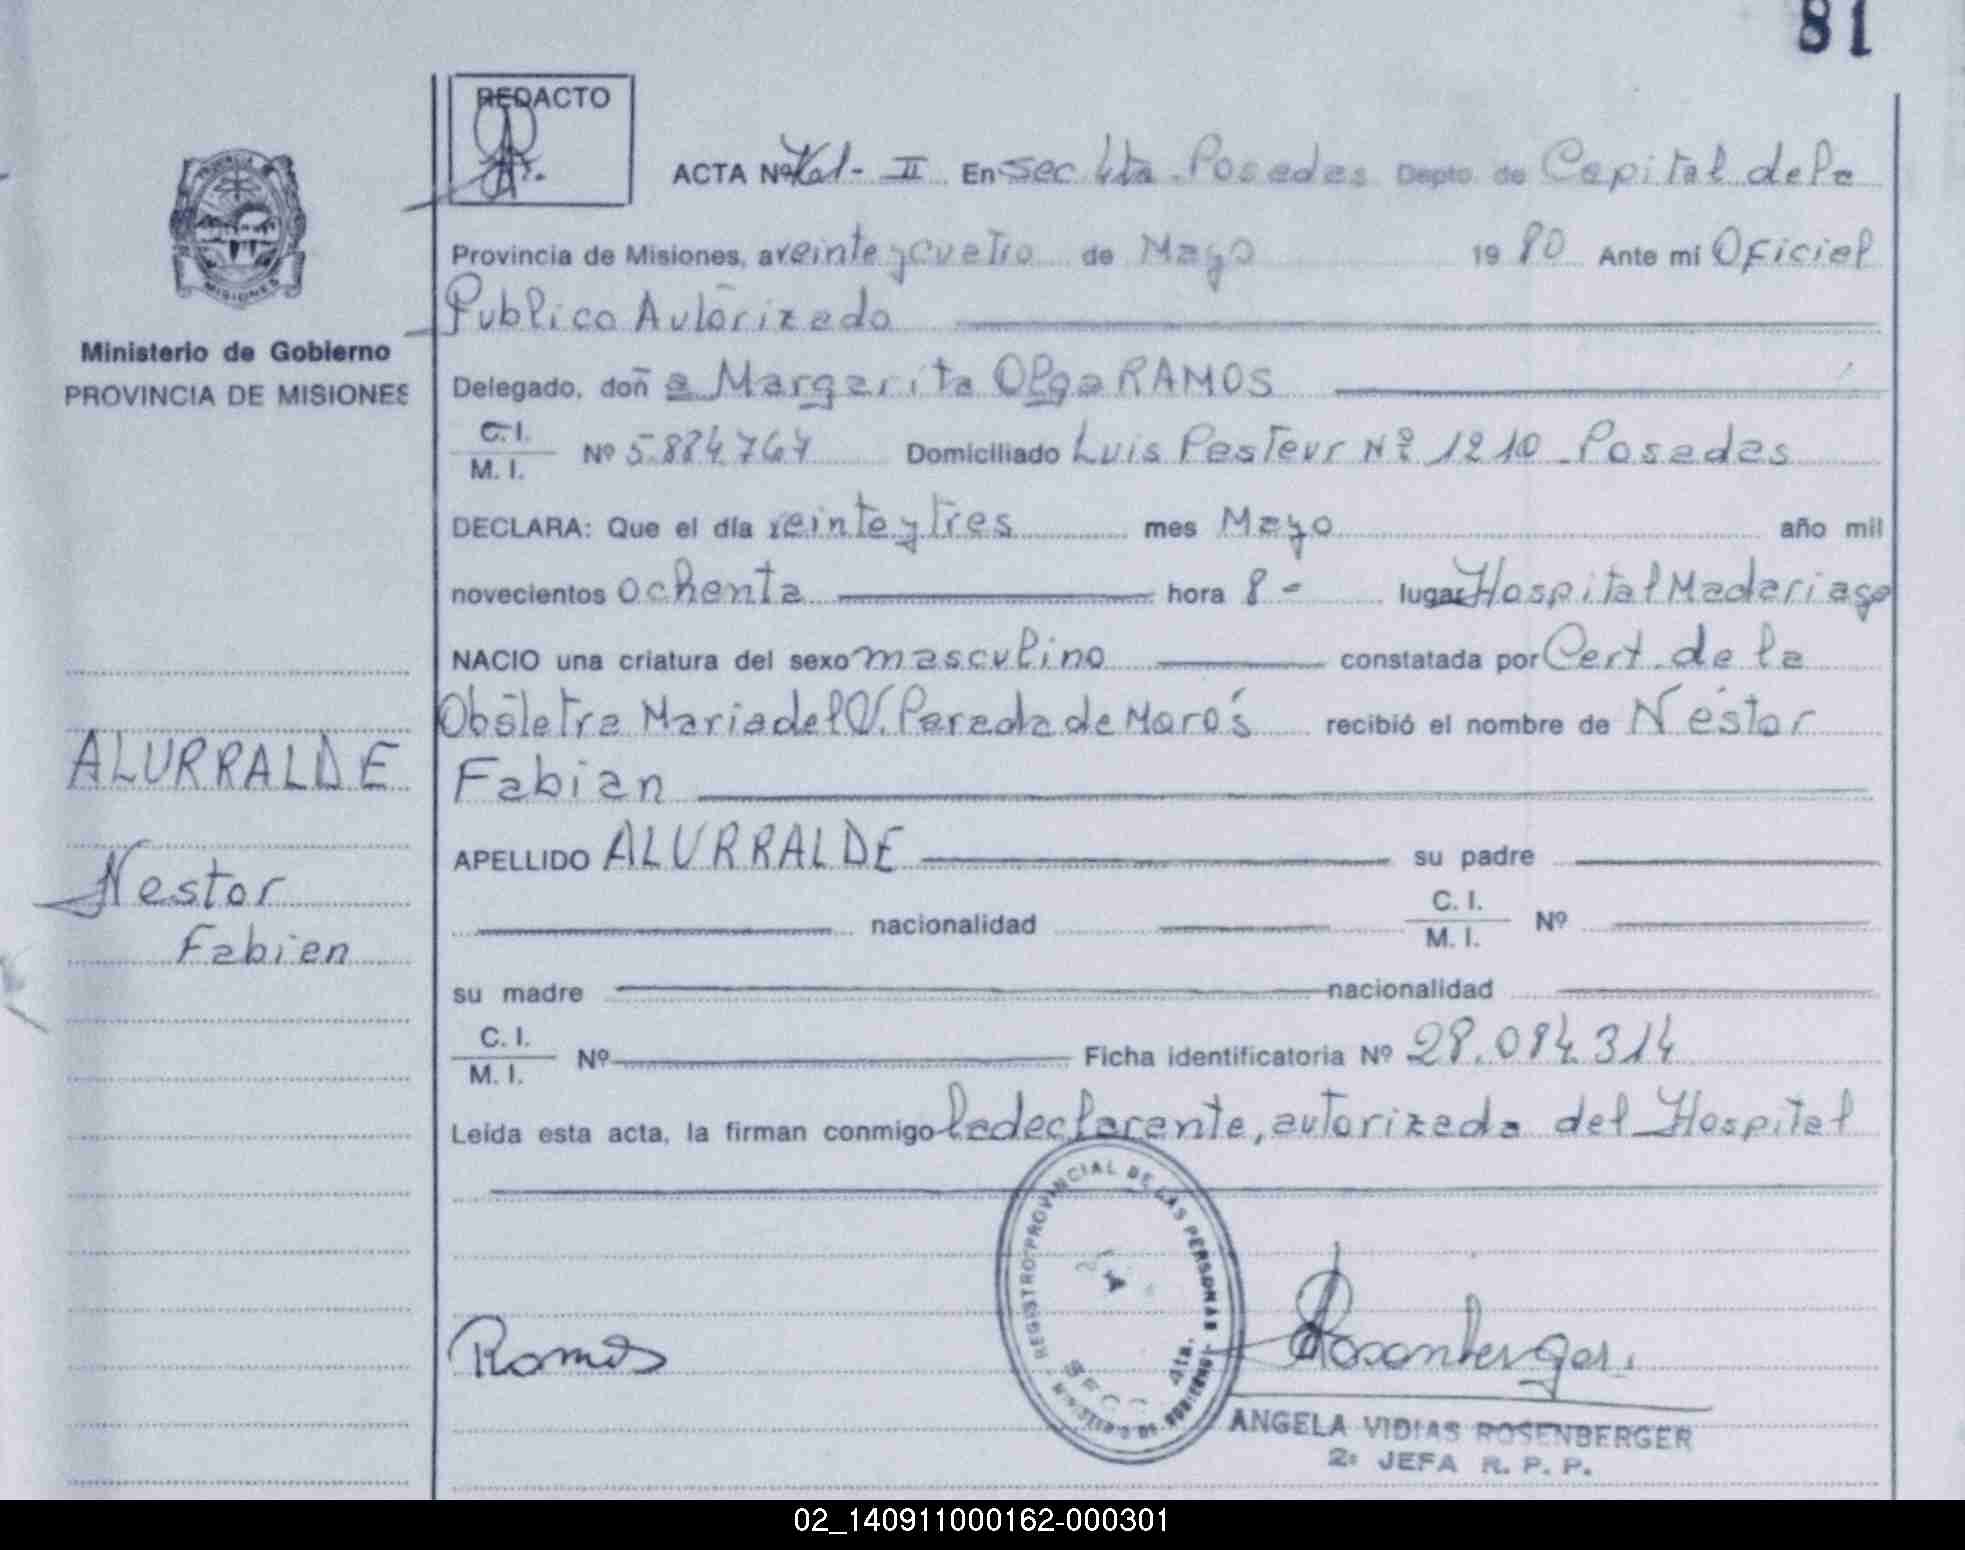 81
REDACTO
ACTA Nº II En Sec 4ta Posadas Depto. de Capital de la
Provincia de Misiones, a veinte y cuatro de Mayo 1980 Ante mi Oficial
Publico Autorizado
Ministerio de Gobierno
PROVINCIA DE MISIONES
Delegado, doña Margarita Olga RAMOS
C. I.
M. I. Nº 5.884.764 Domiciliado Luis Pasteur Nº 1210 - Posadas
DECLARA: Que el día veinte y tres mes Mayo año mil
novecientos ochenta hora 8 - lugar Hospital Madariaga
NACIO una criatura del sexo masculino constatada por Cert. de la
Obstetra Maria del V. Parada de Maros recibió el nombre de Néstor
Fabian
ALURRALDE
Nestor
Fabian
APELLIDO ALURRALDE su padre
nacionalidad C. I.
M. I. Nº
su madre nacionalidad
C. I.
M. I. Nº Ficha identificatoria Nº 28.084.314
Leída esta acta, la firman conmigo la declarante, autorizada del Hospital
REGISTRO PROVINCIAL DE LAS PERSONAS
SECC. 4ta.
Ramos
Rosenberger
ANGELA VIDIAS ROSENBERGER
2: JEFA R. P. P.
MISIONES
02_140911000162-000301